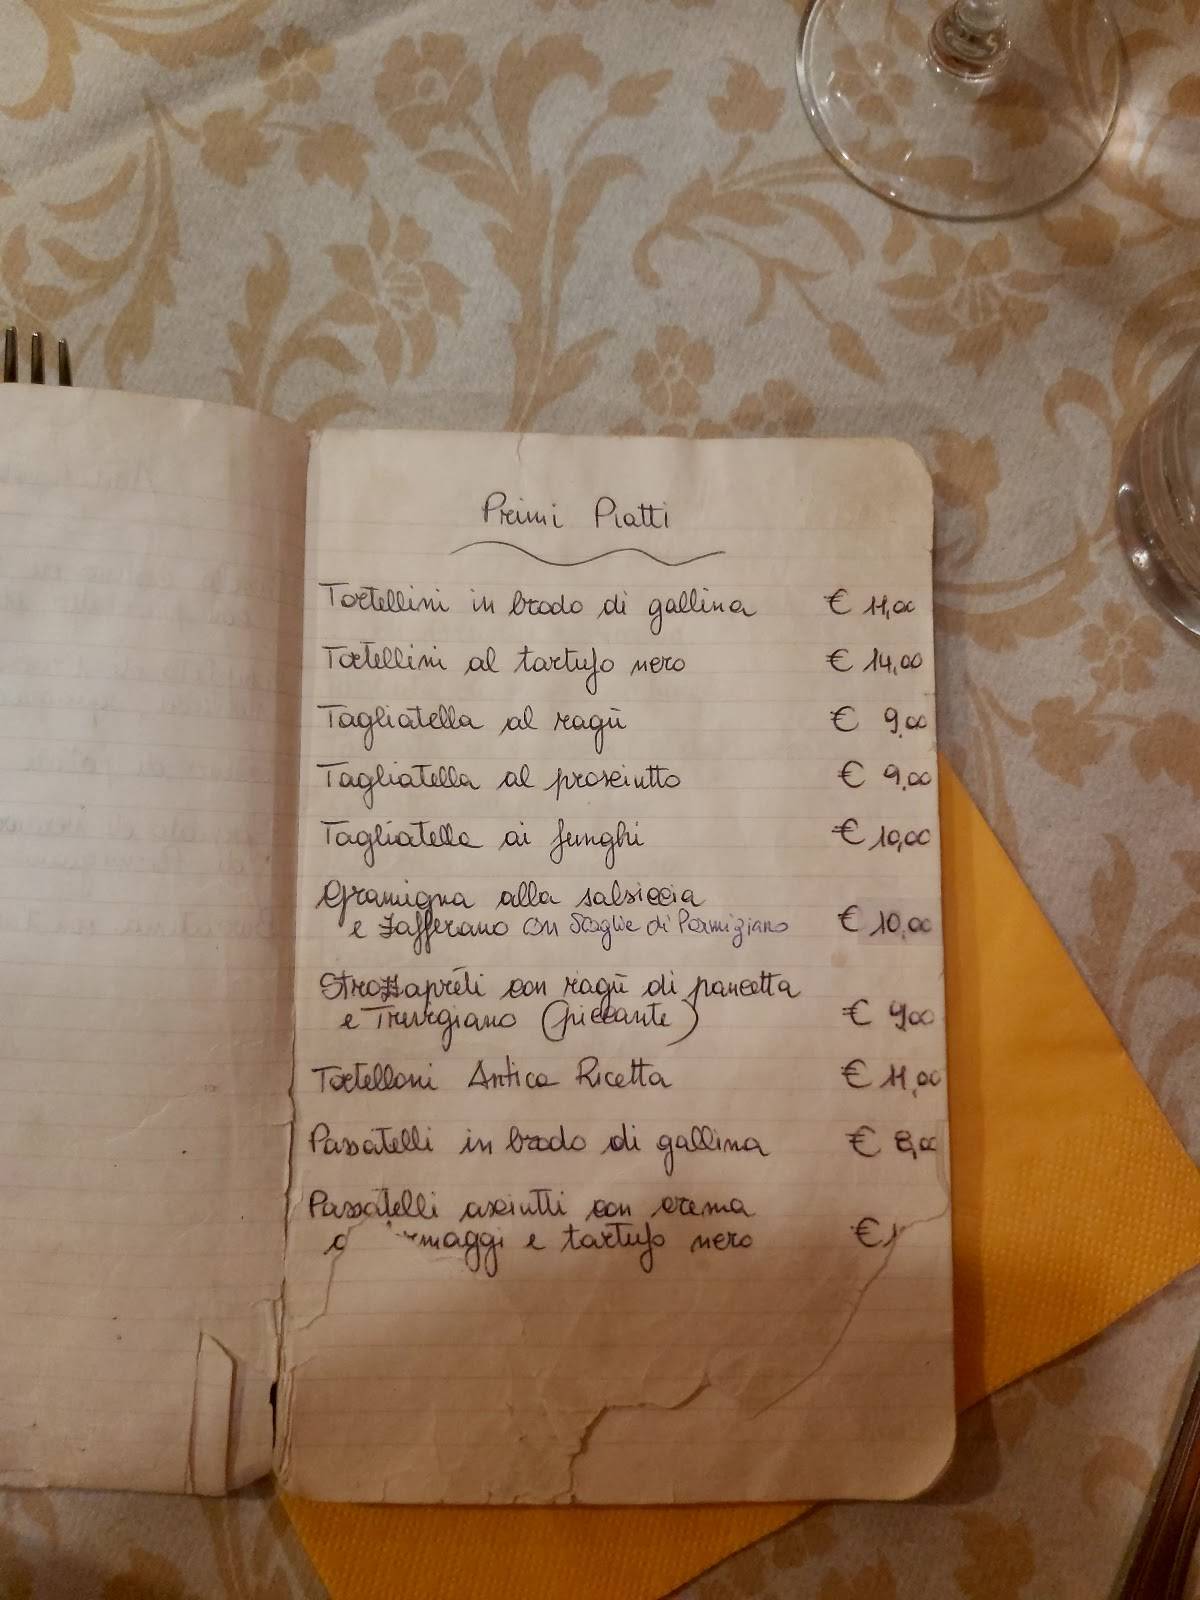 Primi Piatti
Tortellini in brodo di gallina € 11,00
Tortellini al tartufo nero € 14,00
Tagliatella al ragù € 9,00
Tagliatella al prosciutto € 9,00
Tagliatella ai funghi € 10,00
Gramigna alla salsiccia
e zafferano con Scaglie di Parmigiano € 10,00
Strozzapreti con ragù di pancetta
e Trevigiano (piccante) € 9,00
Tortelloni Antica Ricetta € 11,00
Passatelli in brodo di gallina € 8,00
Passatelli asciutti con crema
e tartufo nero €